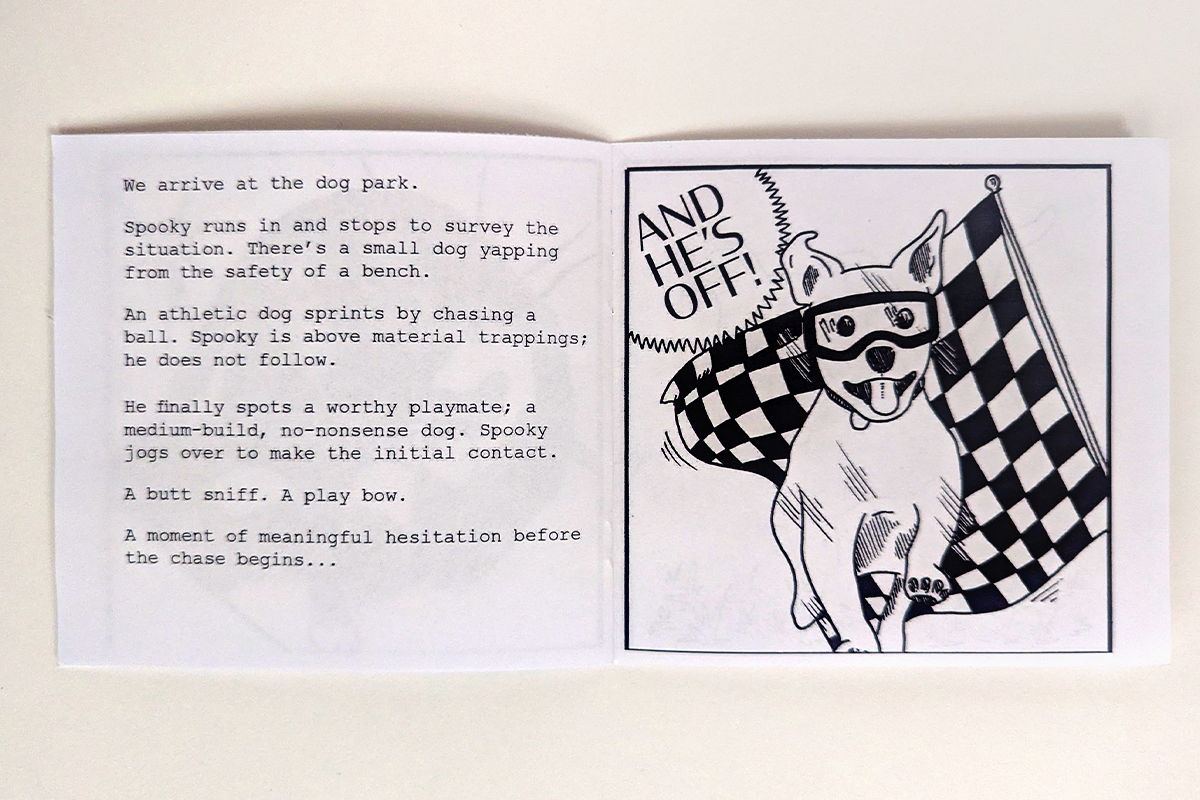 We arrive at the dog park.
Spooky runs in and stops to survey the
situation. There's a small dog yapping
from the safety of a bench.
An athletic dog sprints by chasing a
ball. Spooky is above material trappings;
he does not follow.
He finally spots a worthy playmate; a
medium-build, no-nonsense dog. Spooky
jogs over to make the initial contact.
A butt sniff. A play bow.
A moment of meaningful hesitation before
the chase begins...
AND
HE'S
OFF!